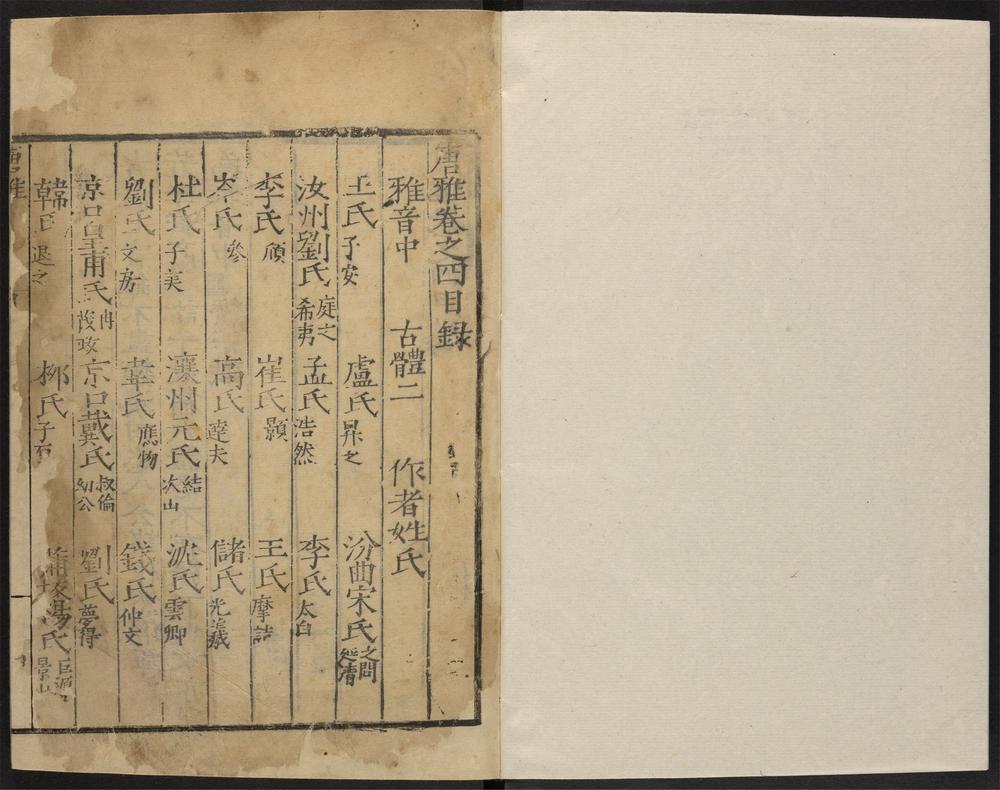 唐雅卷之四目録
雅音中 古體二 作者姓氏
王氏子安 盧氏昇之 汾曲宋氏之問延清
汝州劉氏庭之希夷 孟氏浩然 李氏太白
李氏頎 崔氏顥 王氏摩詰
岑氏參 高氏達夫 儲氏光羲
杜氏子美 瀼州元氏結次山 沈氏雲卿
劉氏文房 韋氏應物 錢氏仲文
京口皇甫氏冉茂政 京口戴氏叔倫幼公 劉氏夢得
韓氏退之 柳氏子 蒲坂楊氏巨源景山
唐雅